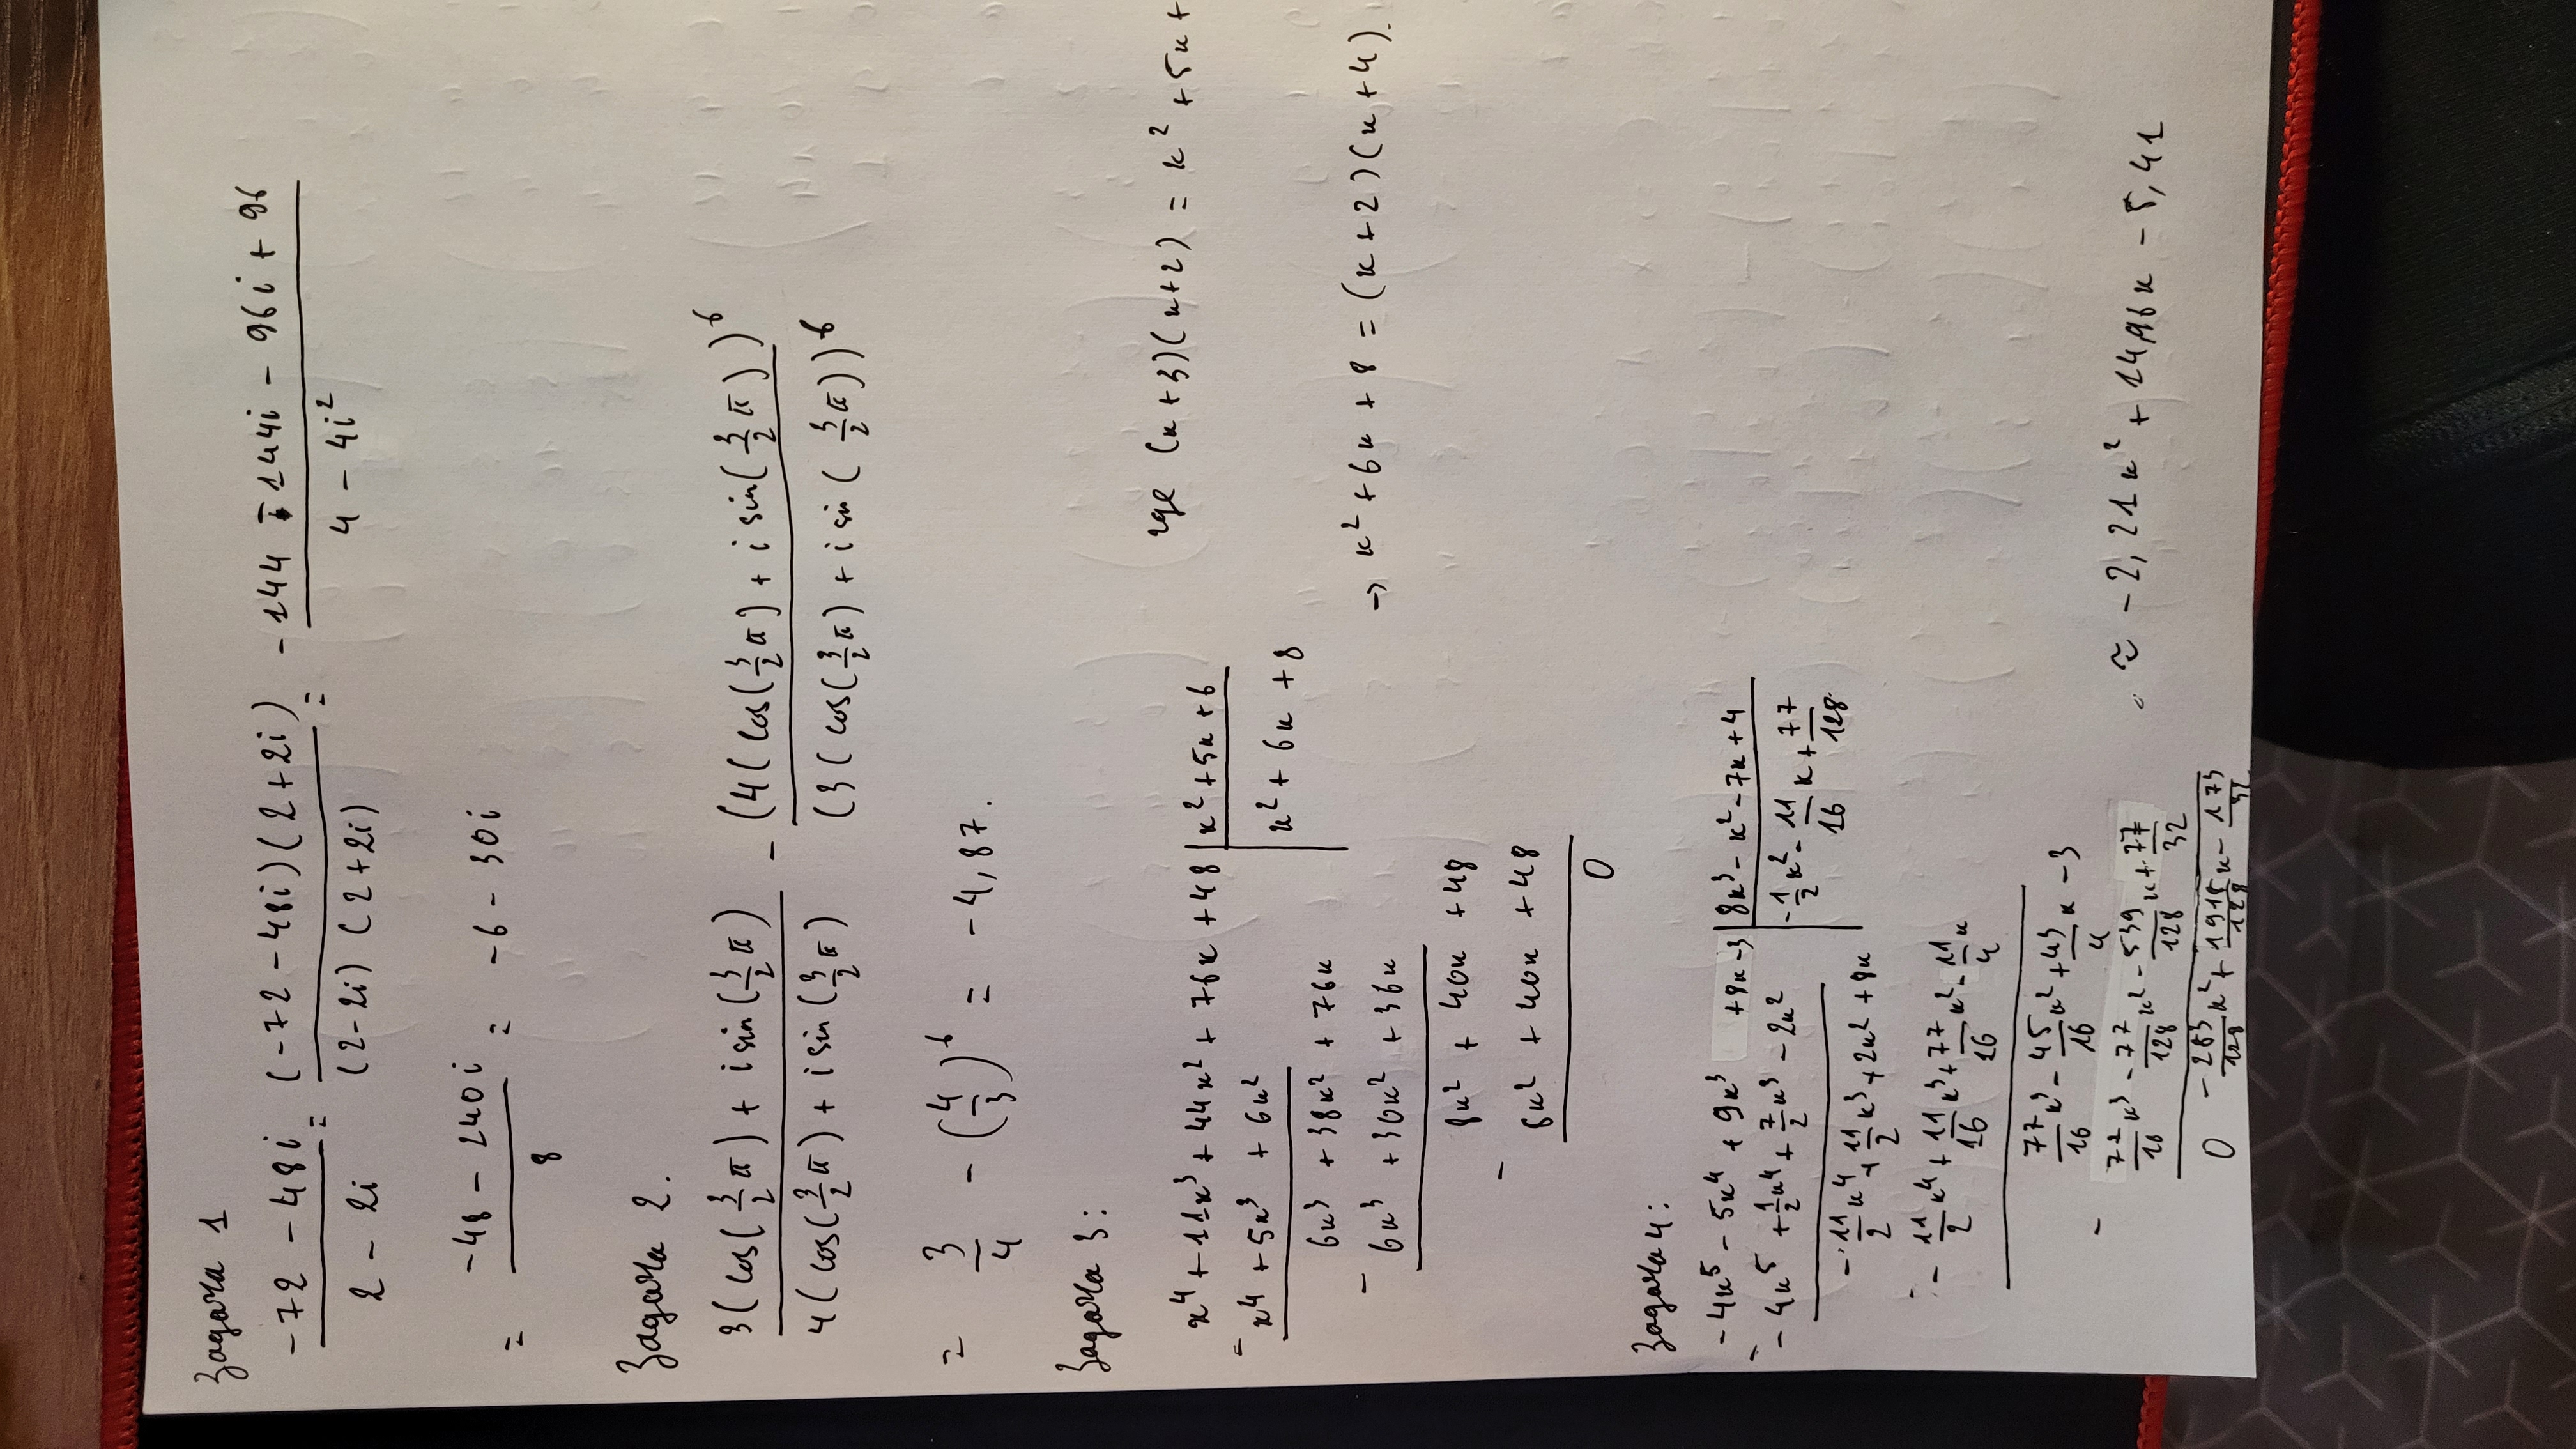 Задача 1
-72 - 48i / 2 - 2i = (-72 - 48i)(2 + 2i) / (2-2i)(2+2i) = -144 - 144i - 96i + 96 / 4 - 4i²
= -48 - 240i / 8 = -6 - 30i
Задача 2.
3(cos(3/2 π) + i sin(3/2 π)) / 4(cos(3/2 π) + i sin(3/2 π)) - (4(cos(3/2 π) + i sin(3/2 π))⁶ / (3(cos(3/2 π) + i sin(3/2 π))⁶
= 3/4 - (4/3)⁶ = -4,87.
Задача 3:
x⁴ + 11x³ + 44x² + 76x + 48 | x² + 5x + 6
где (x+3)(x+2) = x² + 5x +
- x⁴ + 5x³ + 6x² | x² + 6x + 8
6x³ + 38x² + 76x
→ x² + 6x + 8 = (x+2)(x+4).
- 6x³ + 30x² + 36x
8x² + 40x + 48
- 8x² + 40x + 48
0
Задача 4:
-4x⁵ - 5x⁴ + 9x³ + 9x - 3 | 8x³ - x² - 7x + 4
- -4x⁵ + 1/2 x⁴ + 7/2 x³ - 2x² | -1/2 x² - 11/16 x + 77/128
- 11/2 x⁴ + 11/2 x³ + 2x² + 9x
- - 11/2 x⁴ + 11/16 x³ + 77/16 x² - 11/4 x
77/16 x³ - 45/16 x² + 43/4 x - 3
- 77/16 x³ - 77/128 x² - 539/128 x + 77/32
0 - 283/128 x² + 1915/128 x - 173/32
≈ -2,21x² + 14,96x - 5,41